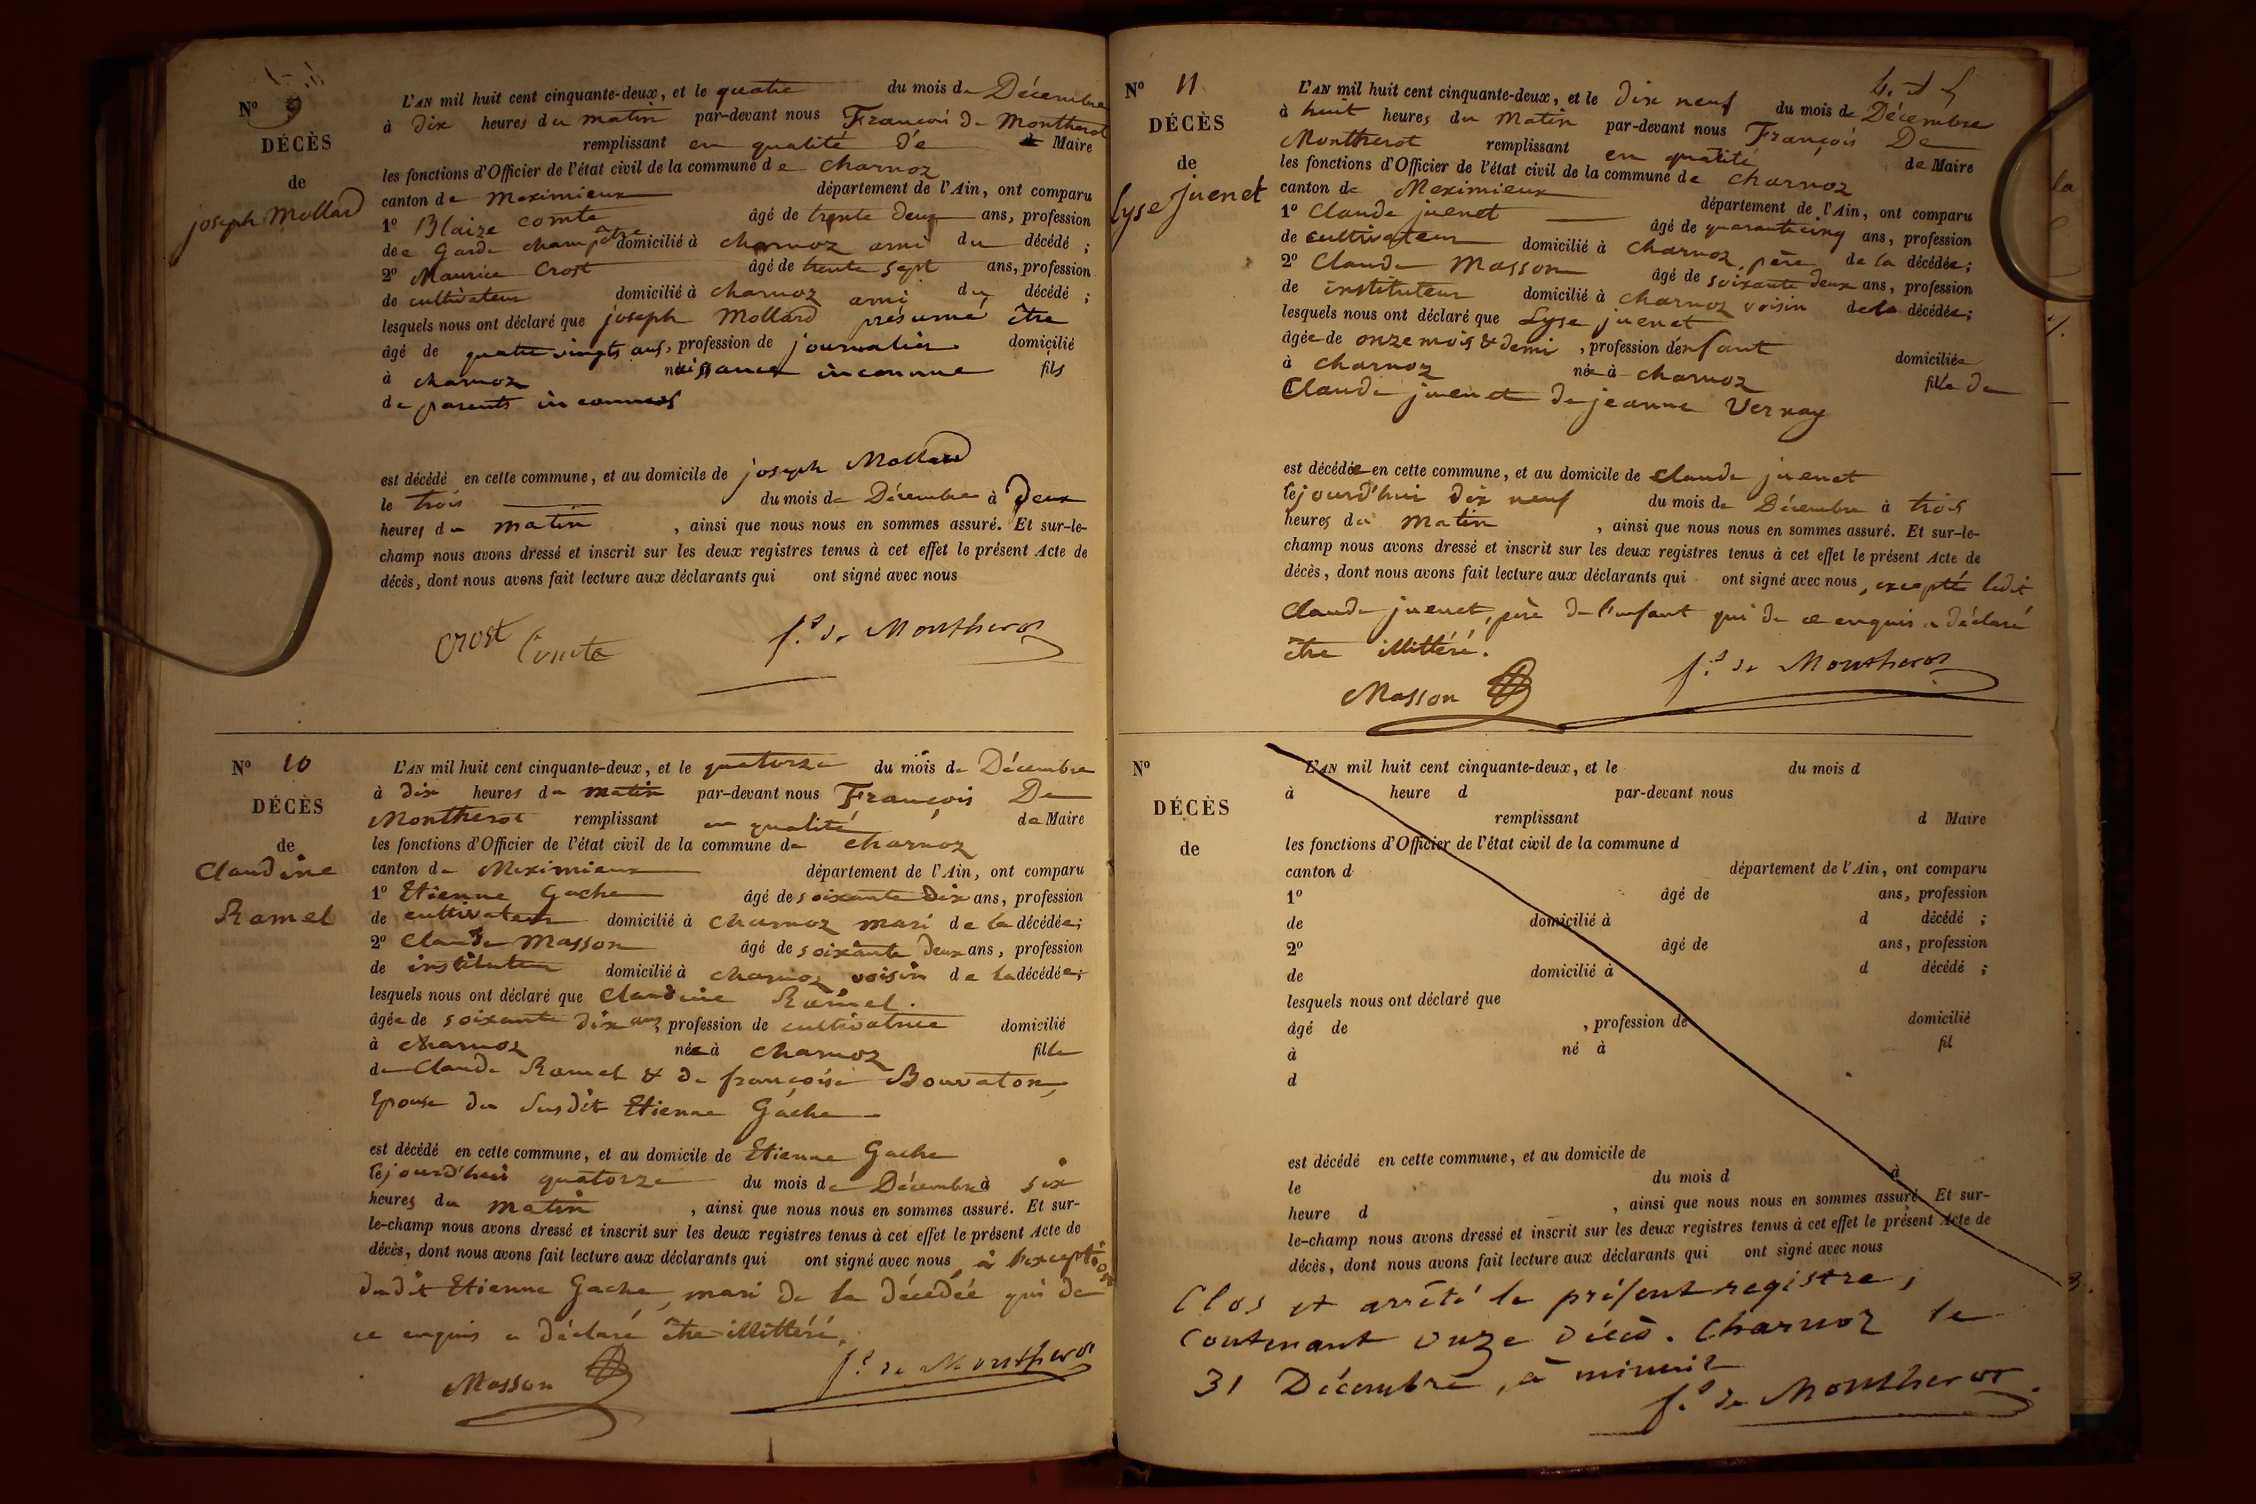 Nº 9
DÉCÈS
de
joseph Mollard
L'AN mil huit cent cinquante-deux, et le quatre du mois de Décembre
à dix heures du matin par-devant nous François De Montherot
remplissant en qualité de Maire
les fonctions d'Officier de l'état civil de la commune de charnoz
canton de meximieux département de l'Ain, ont comparu
1º Blaize comte âgé de trente deux ans, profession
de Garde champêtre domicilié à charnoz ami du décédé ;
2º Maurice Crost âgé de trente sept ans, profession
de cultivateur domicilié à charnoz ami du décédé ;
lesquels nous ont déclaré que joseph Mollard présumé être
âgé de quatre vingts ans, profession de journalier domicilié
à charnoz naissance inconnue fils
de parents inconnus
est décédé en cette commune, et au domicile de joseph Mollard
le trois du mois de Décembre à Deux
heures du matin, ainsi que nous nous en sommes assuré. Et sur-le-
champ nous avons dressé et inscrit sur les deux registres tenus à cet effet le présent Acte de
décès, dont nous avons fait lecture aux déclarants qui ont signé avec nous
Crost Comte f.s de Montherot
Nº 10
DÉCÈS
de
Claudine
Ramel
L'AN mil huit cent cinquante-deux, et le quatorze du mois de Décembre
à dix heures du matin par-devant nous François De
Montherot remplissant en qualité de Maire
les fonctions d'Officier de l'état civil de la commune de charnoz
canton de Meximieux département de l'Ain, ont comparu
1º Etienne Gache âgé de soixante Dix ans, profession
de cultivateur domicilié à charnoz mari de la décédée;
2º Claude Masson âgé de soixante deux ans, profession
de instituteur domicilié à charnoz voisin de la décédée;
lesquels nous ont déclaré que Claudine Ramel.
âgée de soixante dix ans, profession de cultivatrice domicilié
à charnoz née à charnoz fille
de Claude Ramel & de françoise Bouvaton,
Epouse du susdit Etienne Gache
est décédé en cette commune, et au domicile de Etienne Gache
lejourd'hui quatorze du mois de Décembre à six
heures du matin, ainsi que nous nous en sommes assuré. Et sur-
le-champ nous avons dressé et inscrit sur les deux registres tenus à cet effet le présent Acte de
décès, dont nous avons fait lecture aux déclarants qui ont signé avec nous, à l'exception
dudit Etienne Gache, mari de la décédée qui de
ce enquis a déclaré être illittéré.
Masson f.s de Montherot
Nº 11
DÉCÈS
de
Lyse juenet
L'AN mil huit cent cinquante-deux, et le dix neuf du mois de Décembre
à huit heures du matin par-devant nous François De
Montherot remplissant en qualité de Maire
les fonctions d'Officier de l'état civil de la commune de charnoz
canton de Meximieux département de l'Ain, ont comparu
1º Claude juenet âgé de quarante cinq ans, profession
de cultivateur domicilié à charnoz, père de la décédée;
2º Claude Masson âgé de soixante deux ans, profession
de instituteur domicilié à charnoz voisin de la décédée;
lesquels nous ont déclaré que Lyse juenet
âgée de onze mois & demi, profession d'enfant domiciliée
à charnoz née à charnoz fille de
Claude juenet de jeanne Vernay
est décédée en cette commune, et au domicile de Claude juenet
lejourd'hui dix neuf du mois de Décembre à trois
heures du matin, ainsi que nous nous en sommes assuré. Et sur-le-
champ nous avons dressé et inscrit sur les deux registres tenus à cet effet le présent Acte de
décès, dont nous avons fait lecture aux déclarants qui ont signé avec nous, excepté ledit
Claude juenet, père de l'enfant qui de ce enquis a déclaré
être illittéré.
Masson f.s de Montherot
Nº
DÉCÈS
de
L'AN mil huit cent cinquante-deux, et le du mois d
à heure d par-devant nous
remplissant d Maire
les fonctions d'Officier de l'état civil de la commune d
canton d département de l'Ain, ont comparu
1º âgé de ans, profession
de domicilié à d décédé ;
2º âgé de ans, profession
de domicilié à d décédé ;
lesquels nous ont déclaré que
âgé de , profession de domicilié
à né à fil
d
est décédé en cette commune, et au domicile de
le du mois d à
heure d , ainsi que nous nous en sommes assuré. Et sur-
le-champ nous avons dressé et inscrit sur les deux registres tenus à cet effet le présent Acte de
décès, dont nous avons fait lecture aux déclarants qui ont signé avec nous
Clos et arrêté le présent registre,
contenant onze décès. Charnoz le
31 Décembre, à minuit
f.s de Montherot